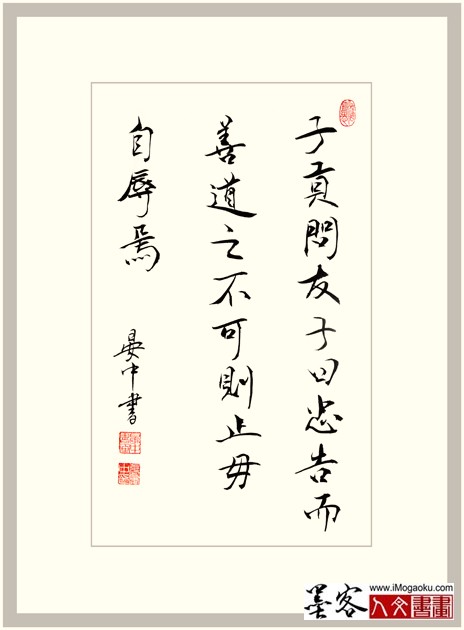 子貢問友子曰忠告而
善道之不可則止毋
自辱焉
晏中書
www.iMogaoku.com
墨客
人文書畫